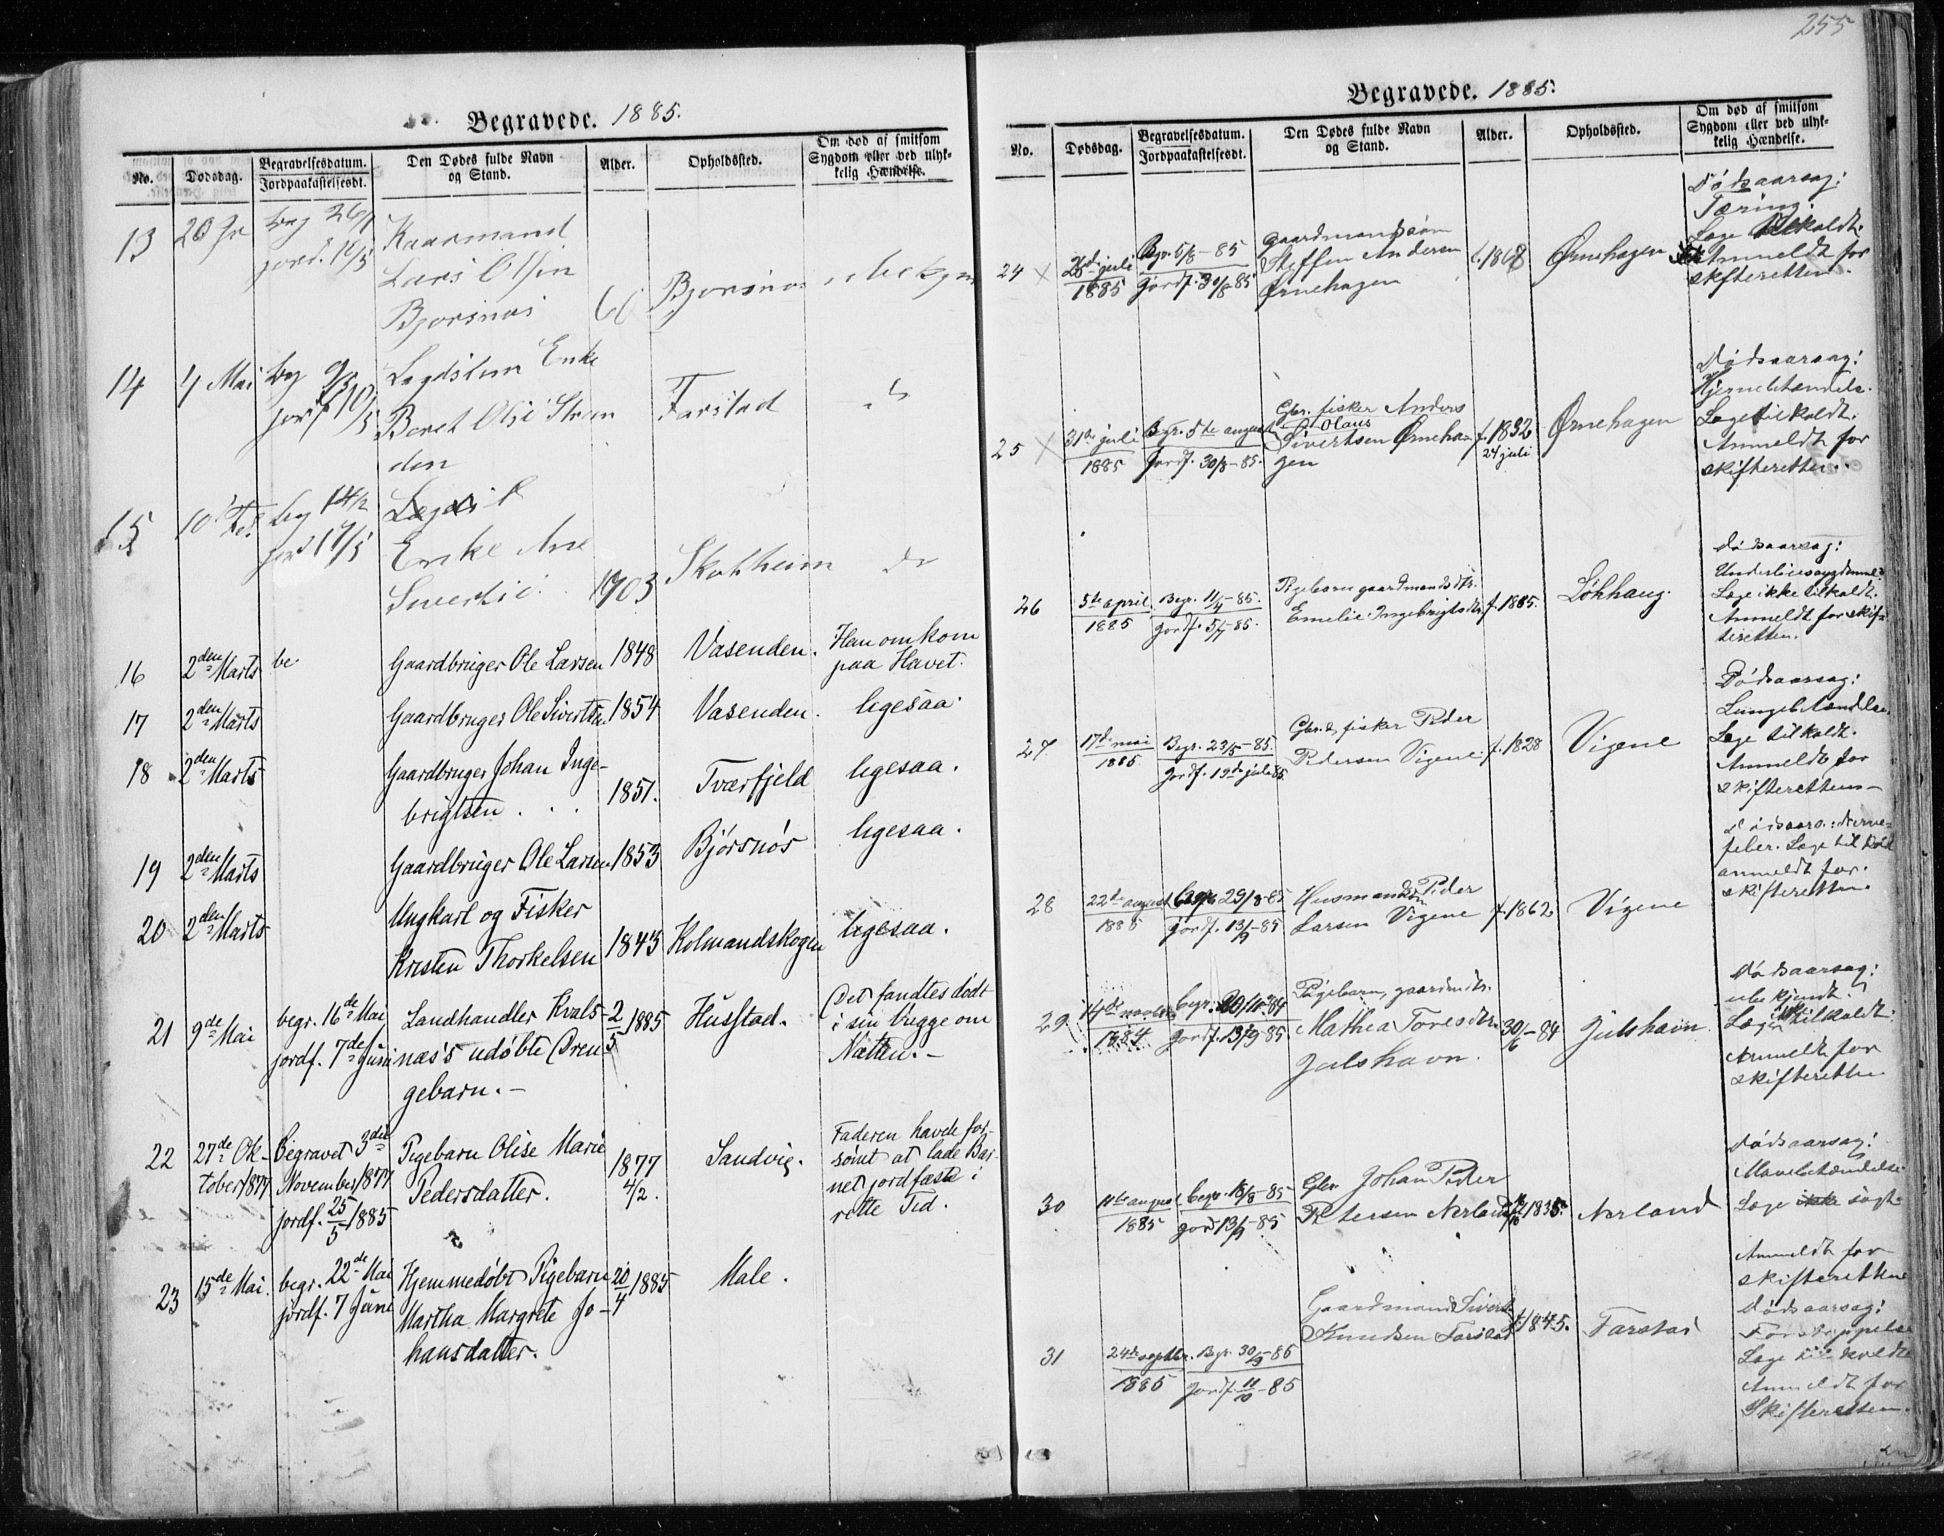 Begravede. 1885.
No.
Dødsdag.
Begravelsesdatum.
Jordpaakastelsesdt.
Den Dødes fulde Navn
og Stand.
Alder.
Opholdssted.
Om død af smitsom
Sygdom eller ved ulyk-
kelig Hændelse.
13
Kaarmand
Lars Olsen
Bjørsnøs
14
4 Mai
Enke
Beret
den
Farstad
15
Enke Ane
Skotheim
16
2den Marts
be
Gaardbruger Ole Larsen
1848
Vasenden.
Han omkom
paa Havet.
17
2den Marts
Gaardbruger Ole Sivertsen
1854
Vasenden.
ligesaa.
18
2den Marts
Gaardbruger Johan Inge-
brigtsen
1851.
Tværfjeld
ligesaa.
19
2den Marts
Gaardbruger Ole Larsen
1853
Bjørsnøs
ligesaa.
20
2den Marts
Ungkarl og Fisker
Kristen Thorkelsen
1845
Kolmandskogen
ligesaa.
21
9de Mai
begr. 16de Mai
jordf. 7de Juni
Landhandler Kvals-
næs's udøbte Dren-
gebarn.-
2/5 1885
Husstad.
Det fandtes dødt
i sin Vugge om
Natten.-
22
27de Ok-
tober 1877
Begravet 3die
November 1877
jordf. 25/5 1885
Pigebarn Olise Marie
Pedersdatter.
1877
4/2.
Sandvig.
Faderen havde for-
sømt at lade Bar-
net jordfæste i
rette Tid.
23
15de Mai.
begr. 22de Mai
jordf. 7 Juni
Hjemmedøbt Pigebarn
Martha Margrete Jo-
hansdatter.
20/4 1885
Male.
255
Begravede. 1885.
No.
Dødsdag.
Begravelsesdatum.
Jordpaakastelsesdt.
Den Dødes fulde Navn
og Stand.
Alder.
Opholdssted.
Om død af smitsom
Sygdom eller ved ulyk-
kelig Hændelse.
24
juli
1885
Begr. 5/8-85
Jordf. 30/8-85
Gaardmandssøn
Steffen Andersen
Ørnehagen
f. 1868
Ørnehagen
Dødsaarsag:
Tæring.
Læge tilkaldt.
Anmeldt for
skifteretten.
25
31te juli
1885
Begr. 5te august
Jordf. 30/8-85.
Gbr. fisker Anders
Olaus
Sivertsen Ørneha-
gen
f. 1832
24 juli
Ørnehagen
Dødsaarsag:
Hjernebetændelse.
Læge tilkaldt.
Anmeldt for
skifteretten.
26
5te april
1885
Begr. 11/4-85.
Jordf. 5/7-85.
Pigebarn gaardmandsdtr.
Emelie Ingebrigtsdtr.
f. 1885.
Løkhaug.
Dødsaarsag:
Læge ikke tilkaldt.
Anmeldt for skif-
teretten.
27
17de mai
1885
Begr. 23/5-85.
Jordf. 19de juli 85.
Gbr. & fisker Peder
Pedersen Vigene
f. 1828
Vigene
Dødsaarsag:
Lungebetændelse.
Læge tilkaldt.
Anmeldt for
skifteretten-
28
22de august
1885
29/8-85
Jordf. 13/9-85
Husmandssøn Peder
Larsen Vigene
f. 1862
Vigene
Dødsaars.: Nerve-
feber. Læge tilkaldt
anmeldt for
skifteretten.
29.
14de novbr.
1884
begr.
Jordf. 13/9 85.
Pigebarn, gaardmdtr.
Mathea Toresdtr.
Julshavn.
30/6-84
Julshavn
Dødsaarsag:
ubekjendt.
Læge tilkaldt.
Anmeldt for
skifteretten
30
11te august
1885
begr. 18/8-85
Jordf. 13/9-85
Gbr. Johan Peder
Petersen Nerland
1835.
Nerland
Dødsaarsag:
Mavebetændelse
Læge ikke søgt.
Anmeldt for
skifteretten
31
24de septbr.
1885
Begr. 30/9-85
Jordf. 11/10-85
Gaardmand Sivert
Knudsen Farstad
f. 1845.
Farstad
Dødsaarsag:
Forstoppelse
Læge tilkaldt
Anmeldt for
Skifteretten.